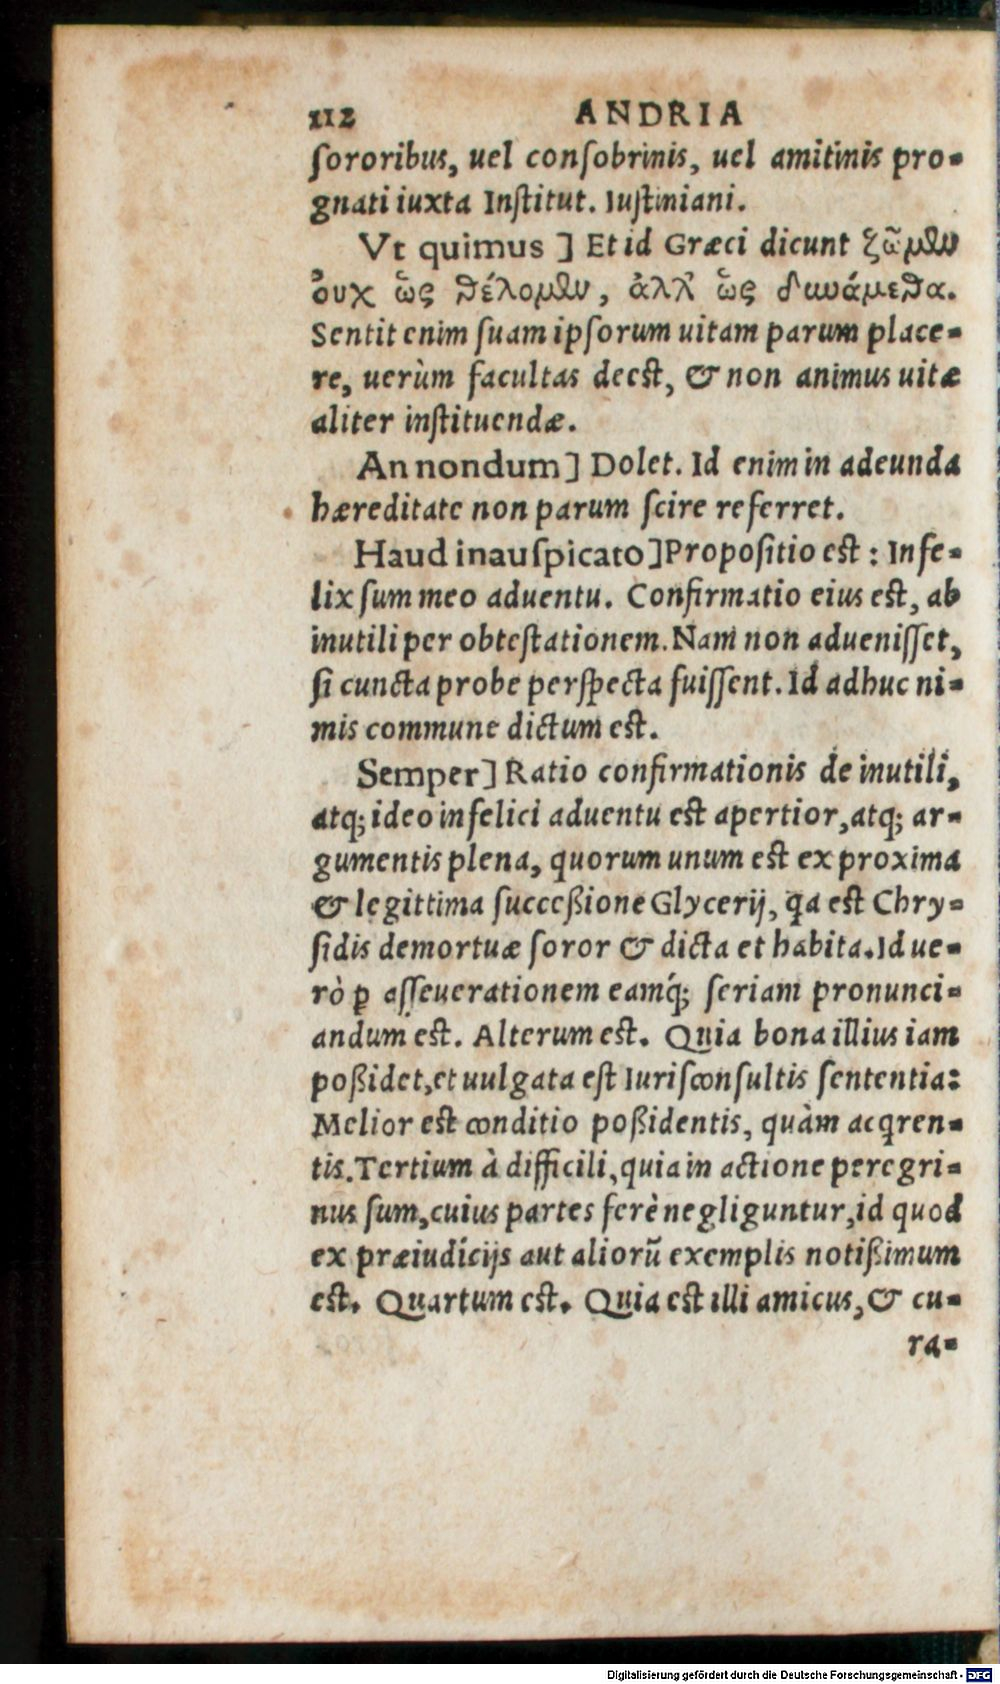 112 ANDRIA
ſororibus, uel conſobrinis, uel amitinis pro-
gnati iuxta Inſtitut. Iuſtiniani.
Vt quimus ] Et id Græci dicunt ζῶμεν
οὐχ ὥς θέλομεν, ἀλλ' ὥς δυνάμεθα.
Sentit enim ſuam ipſorum uitam parum place-
re, uerùm facultas deeſt, & non animus uitæ
aliter inſtituendæ.
An nondum ] Dolet. Id enim in adeunda
hæreditate non parum ſcire referret.
Haud inauſpicato ] Propoſitio eſt : Infe-
lix ſum meo aduentu. Confirmatio eius eſt, ab
inutili per obteſtationem. Nam non adueniſſet,
ſi cuncta probe perſpecta fuiſſent. Id adhuc ni-
mis commune dictum eſt.
Semper ] Ratio confirmationis de inutili,
atq; ideo infelici aduentu eſt apertior, atq; ar-
gumentis plena, quorum unum eſt ex proxima
& legittima ſucceßione Glycerij, qa eſt Chry-
ſidis demortuæ ſoror & dicta et habita. Id ue-
rò ꝑ aſſeuerationem eamq́; ſeriam pronunci-
andum eſt. Alterum eſt. Quia bona illius iam
poßidet, et uulgata eſt Iuriſconſultis ſententia:
Melior eſt conditio poßidentis, quàm acqren-
tis. Tertium à difficili, quia in actione peregri-
nus ſum, cuius partes ferè negliguntur, id quod
ex præiudicijs aut aliorũ exemplis notißimum
eſt. Quartum eſt. Quia eſt illi amicus, & cu-
ra-
Digitalisierung gefördert durch die Deutsche Forschungsgemeinschaft - DFG